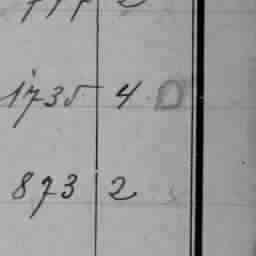 1735 4
873 2